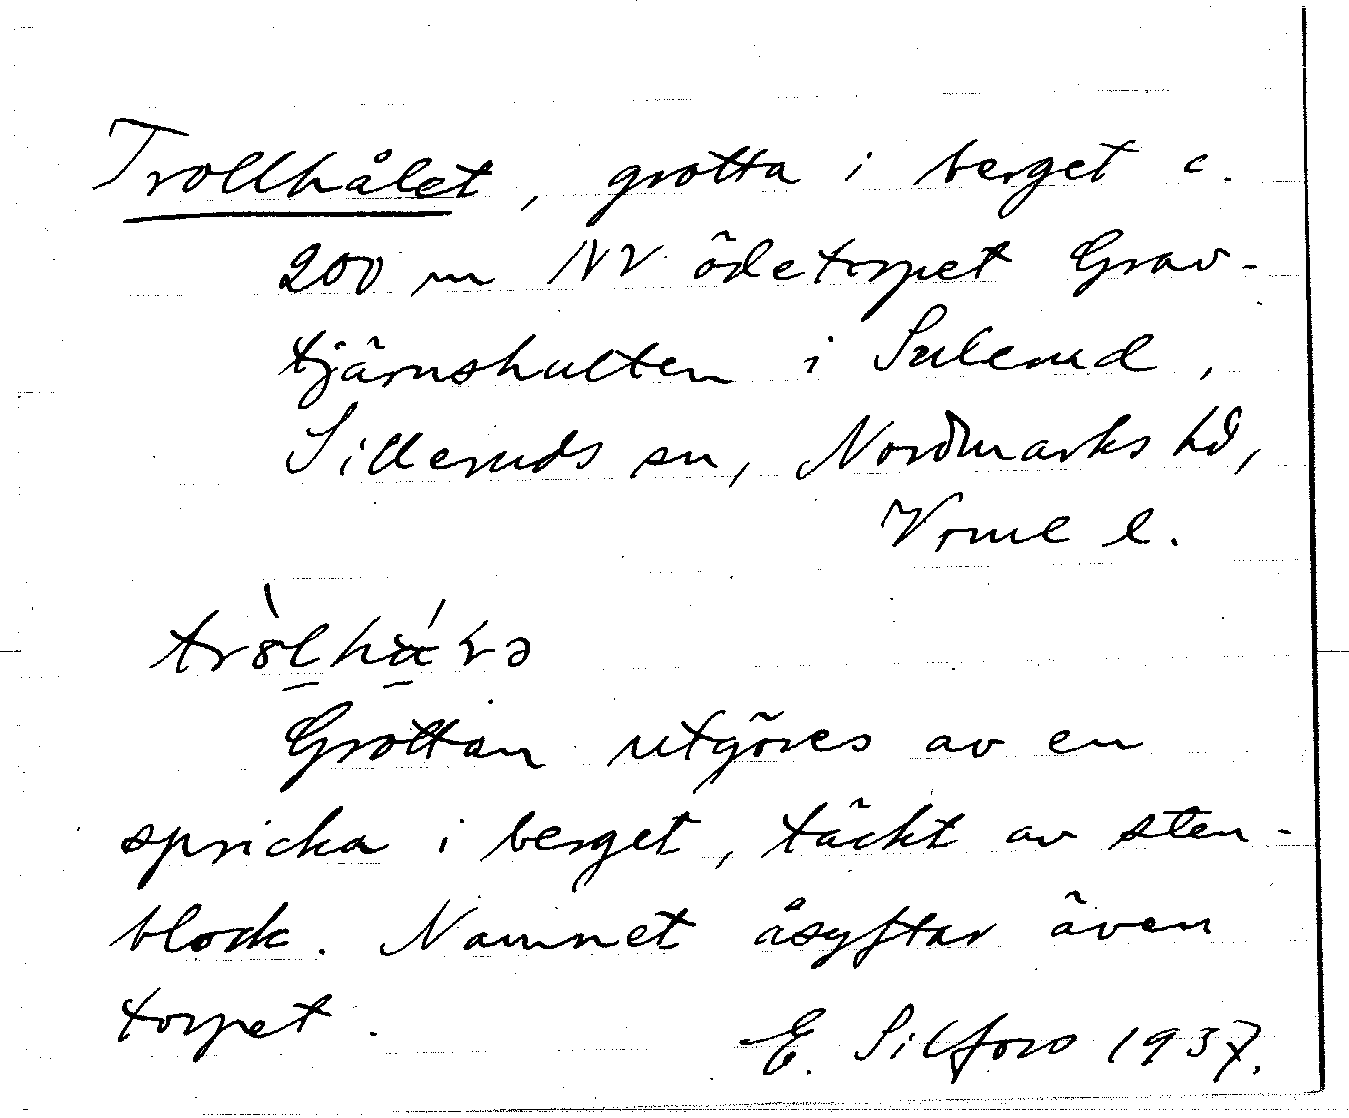 Trollhålet, grotta i berget c.
200 m NV ödetorpet Grav-
tjärnshulten i Sulerud,
Silleruds sn, Nordmarks hd,
Vrml l.
Grottan utgöres av en
spricka i berget, täckt av sten-
block. Namnet åsyftar även
torpet.
E. Silfors 1937.